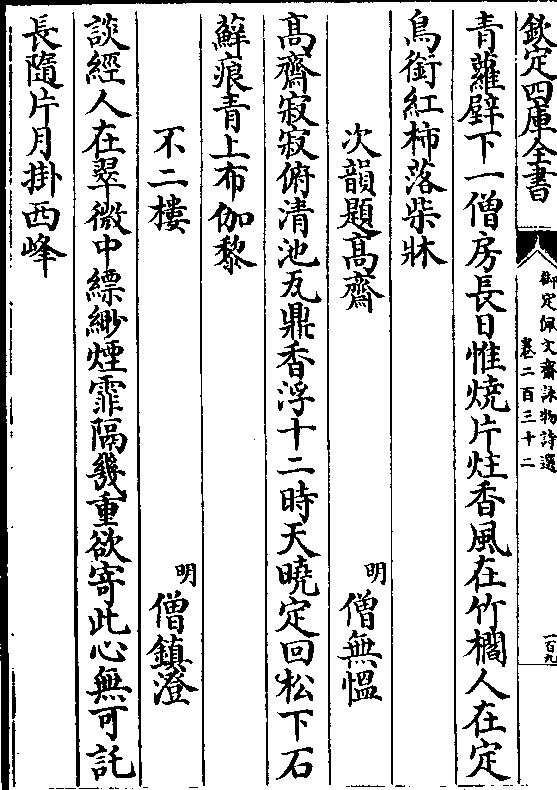 欽定四庫全書
御定佩文齋詠物詩選
卷二百三十二
一百九
青蘿壁下一僧房長日惟燒片炷香風在竹欄人在定
鳥銜紅柿落柴牀
次韻題高齋
明
僧無愠
高齋寂寂俯清池瓦鼎香浮十二時天曉定回松下石
蘚痕青上布伽黎
不二樓
明
僧鎮澄
談經人在翠微中縹緲煙霏隔幾重欲寄此心無可託
長隨片月掛西峰